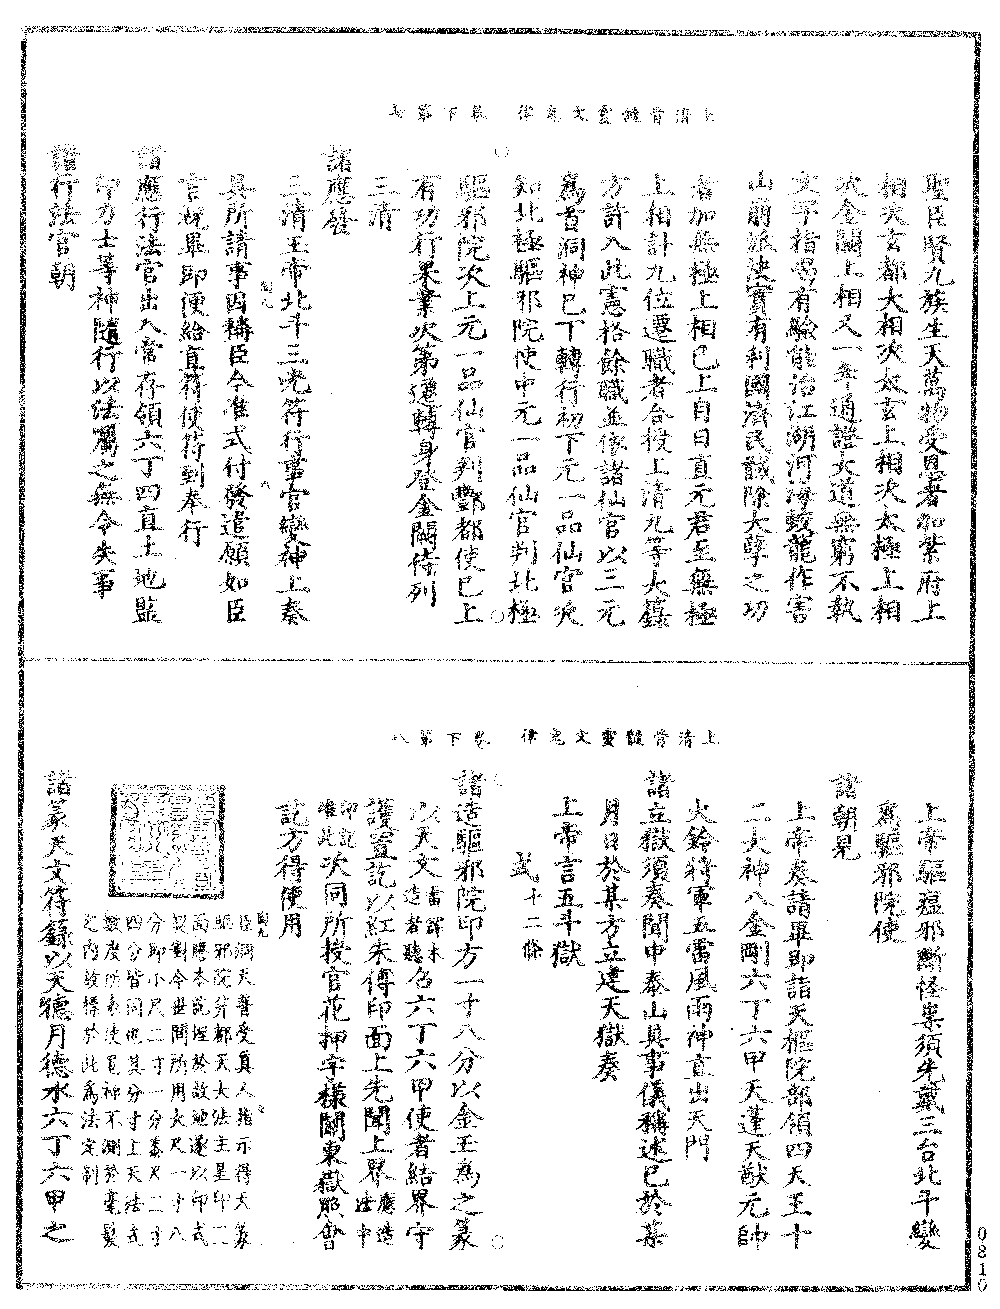 上清骨髓靈文鬼律　卷下第七
聖臣賢九族生天萬物受恩者加紫府上
相次玄都大相次太玄上相次太極上相
次金闕上相又一年通證大道無窮不執
文字指喝有驗能治江湖河海蛟龍作害
山崩旅決實有利國濟民誠除大孽之功
者加無極上相已上自日直元君至無極
上相計九位遷職者合授上清九等大籙
方許入此憲格餘職並依諸仙官以三元
為首洞神已下轉行初下元一品仙官次
知北極驅邪院使中元一品仙官判北極
驅邪院次上元一品仙官判酆都使已上
有功行果業次第遷轉身登金闕侍列
三清
諸應發
三清玉帝北斗三光符行事官變神上奏
具所請事因稱臣今准式付發遣願如臣
言規畢即便給直符使符到奉行
諸應行法官出入常存領六丁四直土地監
印力士等神隨行以法屬之無令失事
諸行法官朝
上清骨髓靈文鬼律　卷下第八
上帝驅瘟邪斷怪祟須先戴三台北斗變
為驅邪院使
諸朝見
上帝奏請畢即詣天樞院部領四天王十
二大神八金剛六丁六甲天蓬天猷元帥
火鈴將軍五雷風雨神直出天門
諸立獄須奏聞申泰山具事儀稱述已於某
月日於某方立建天獄奏
上帝言五斗獄
式十二條
諸造驅邪院印方一寸八分以金玉為之篆
以天文雷霹木造者聽名六丁六甲使者結界守
護置訖以紅朱傅印面上先聞上界應造法中
印訖准此次同所授官花押字樣關東嶽照會
訖方得使用
臣洞天普受真人指示得大篆
驅邪院符都天大法主是印二
面賸本說埋於故地遂以印式
製到今世間所用大尺一寸八
分即小尺二寸一分泰尺二寸
四分皆同也其分寸上天法式
數度所表使鬼神不測於毫髮
之內故得於此為法定制
諸篆天文符籙以天德月德水六丁六甲之
0810